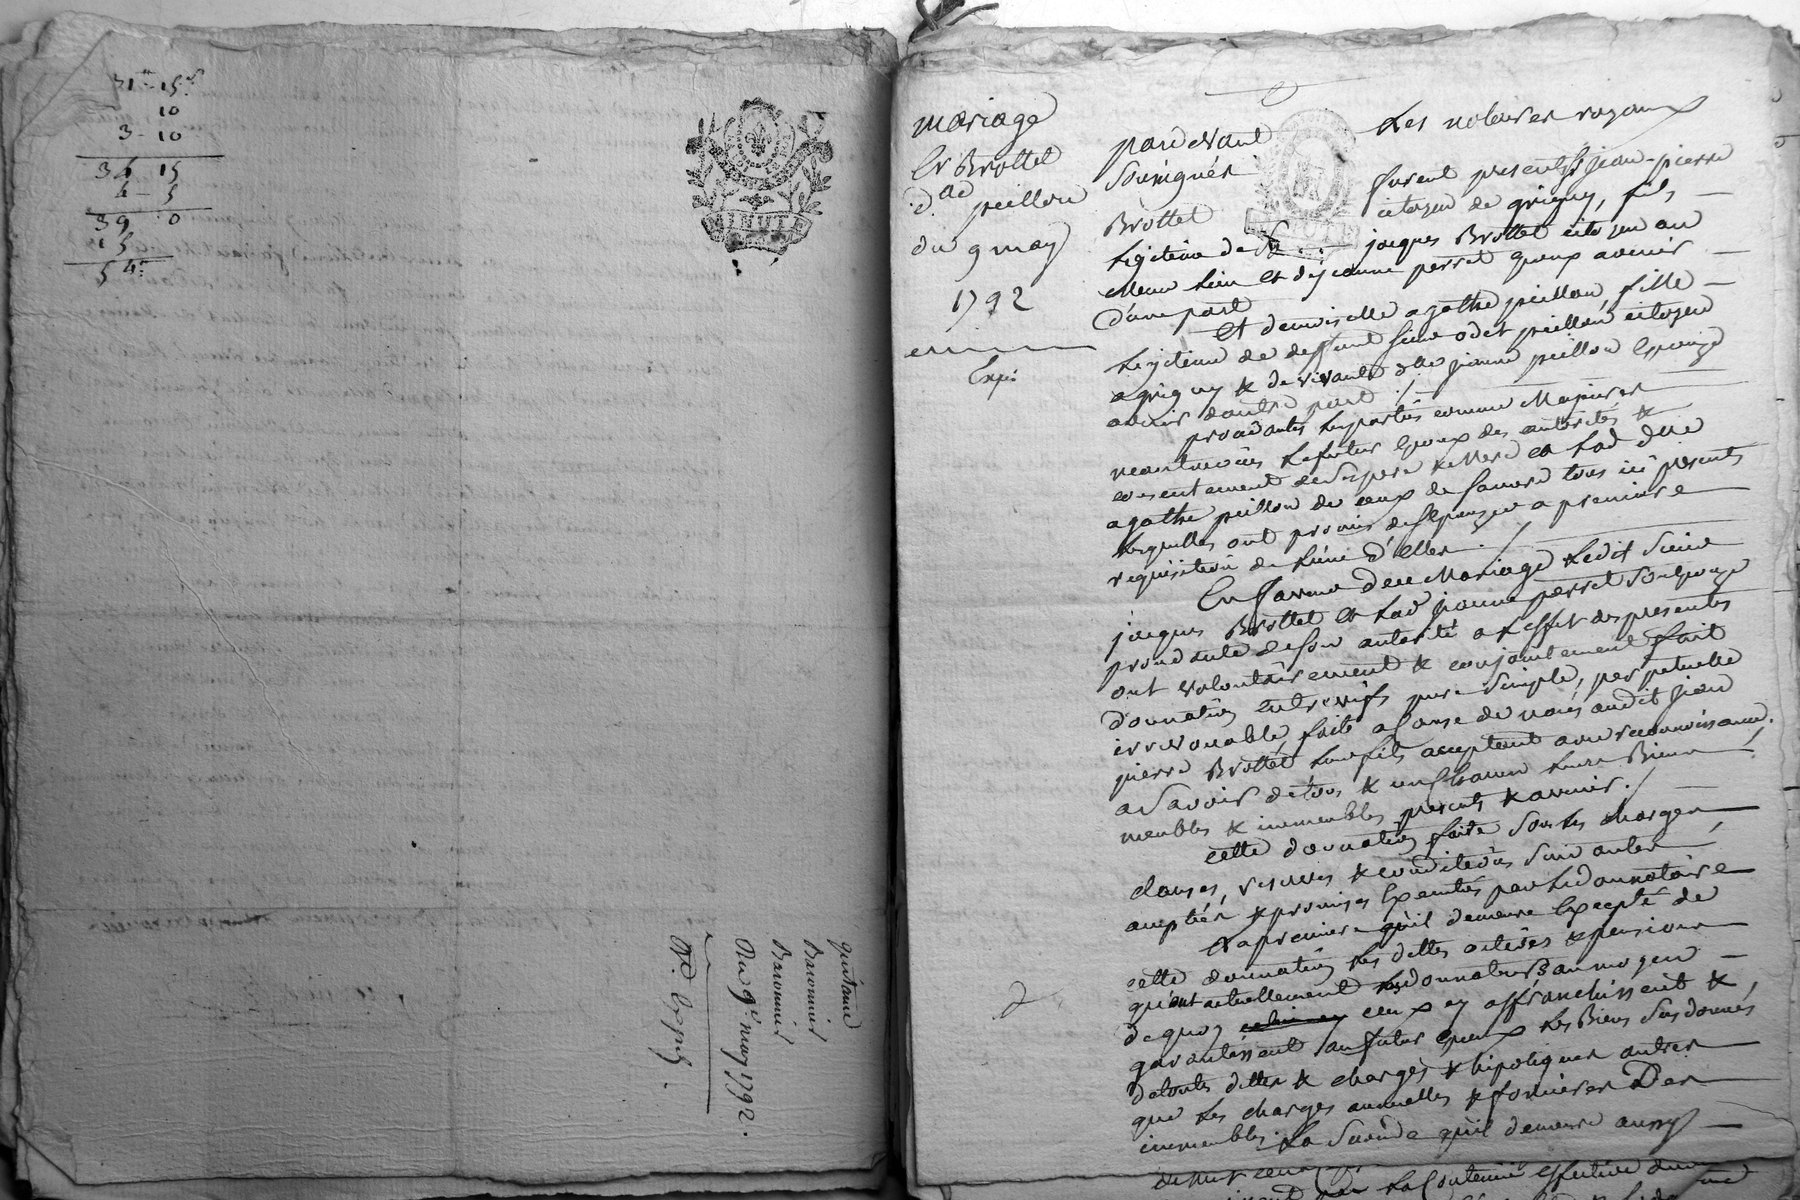 31ᵗᵗ 15ˢ
10
3 - 10
34 15
4 - 5
39 0
15
54ᵗᵗ
MINUTE
quittance
Baronnier
Baronnier
Du 9ᵉ may 1792.
Expᵉ
mariage
Sr Brottet
&. dˡˡᵉ peillon
du 9 may
1792
Exp:
pardevant Les notaires royaux
Soussignés
furent presents Sr jean-pierre
Brottet citoyen de grigny, fils
Legitime de Sr jacques Brottet citoyen au
Meme Lieu et de jeanne perret Epoux avenir
d'une part
Et demoiselle agathe peillon, fille
Legitime de deffunt sieur odet peillon citoyen
a grigny & de vivante dlle jeanne peillon Epouze
avenir d'autre part /
procedantes Les parties comme Majeures
neantmoins Le futur Epoux des autorités &
consentement de Ses pere & Mere et Lad dlle
agathe peillon de ceux de sa mere tous ici presents
Lesquelles ont promis de s'Epouzer a premiere
requisition de L'une d'Elles /
En faveur de ce Mariage Ledit Sieur
jacques Brottet et Lad jeanne perret Son Epouze
procedante de son autorité a L'effet des presentes
ont volontairement & conjointement fait
donnation Entrevifs pure Simple, perpetuelle
irrevocable faite a Cause de noces audit jean
pierre Brottet Leur fils acceptant avec reconnoissance.
a Savoir de tous & un chacun Leurs Biens
meubles & immeubles presents & avenir. /
cette donnation faite Sous Les charges,
clauses, reserves & conditions Suivantes
acceptées & promises Executées par Le donnataire
La premiere qu'il demeure Excepté de
cette donnation Les dettes actives & pensions
qu'ont actuellement Les donnateurs au moyen
de quoy ceux cy affranchissent &
garantissent au futur Epoux Les Biens Sus donnés
de toutes dettes & charges & hipoteques autres
que Les charges annuelles & foncieres Des
immeubles. La Seconde qu'il demeure aussy